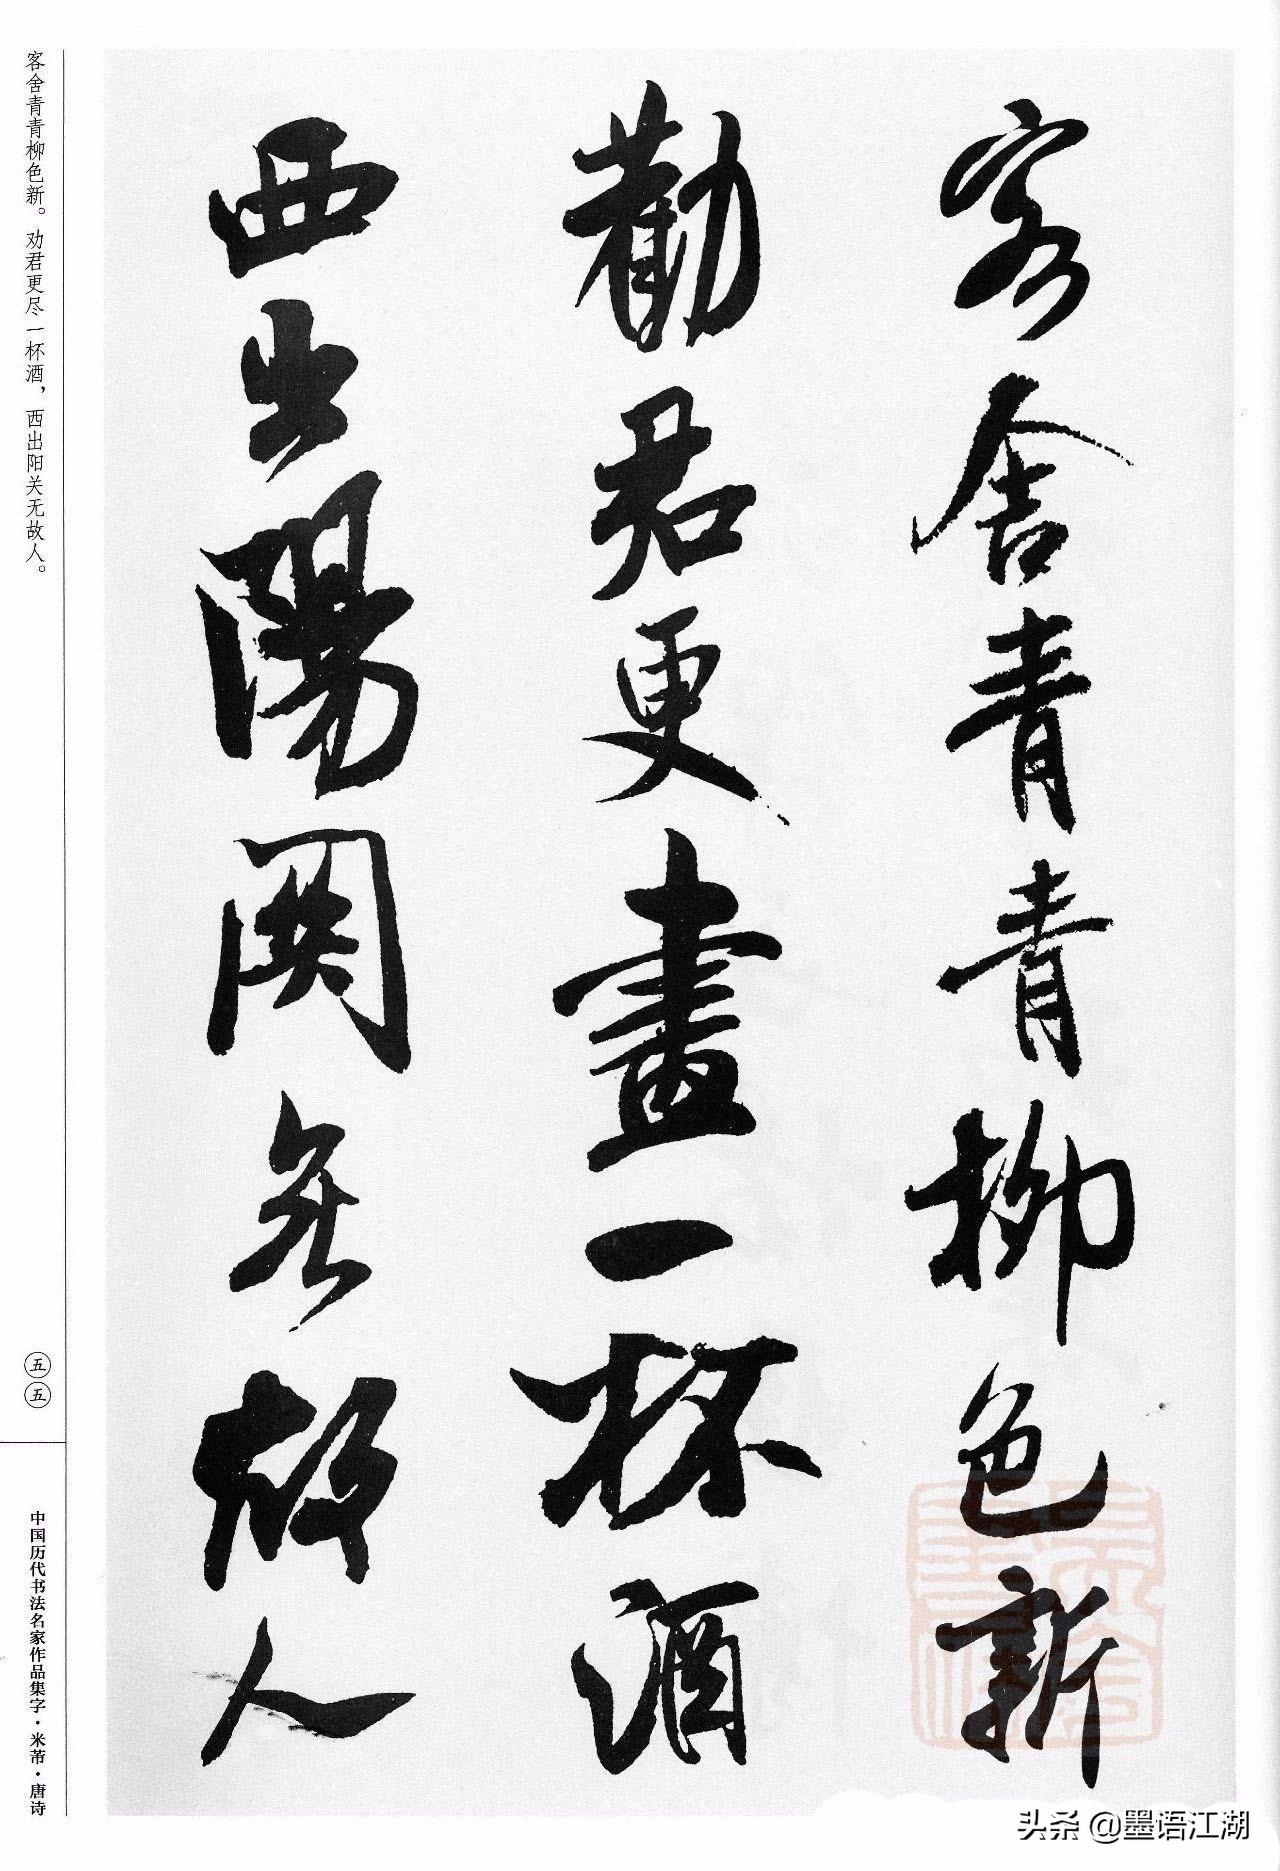 客舍青青柳色新
勸君更盡一杯酒
西出陽關無故人
客舍青青柳色新。劝君更尽一杯酒，西出阳关无故人。
五五
中国历代书法名家作品集字·米芾·唐诗
头条 @墨语江湖